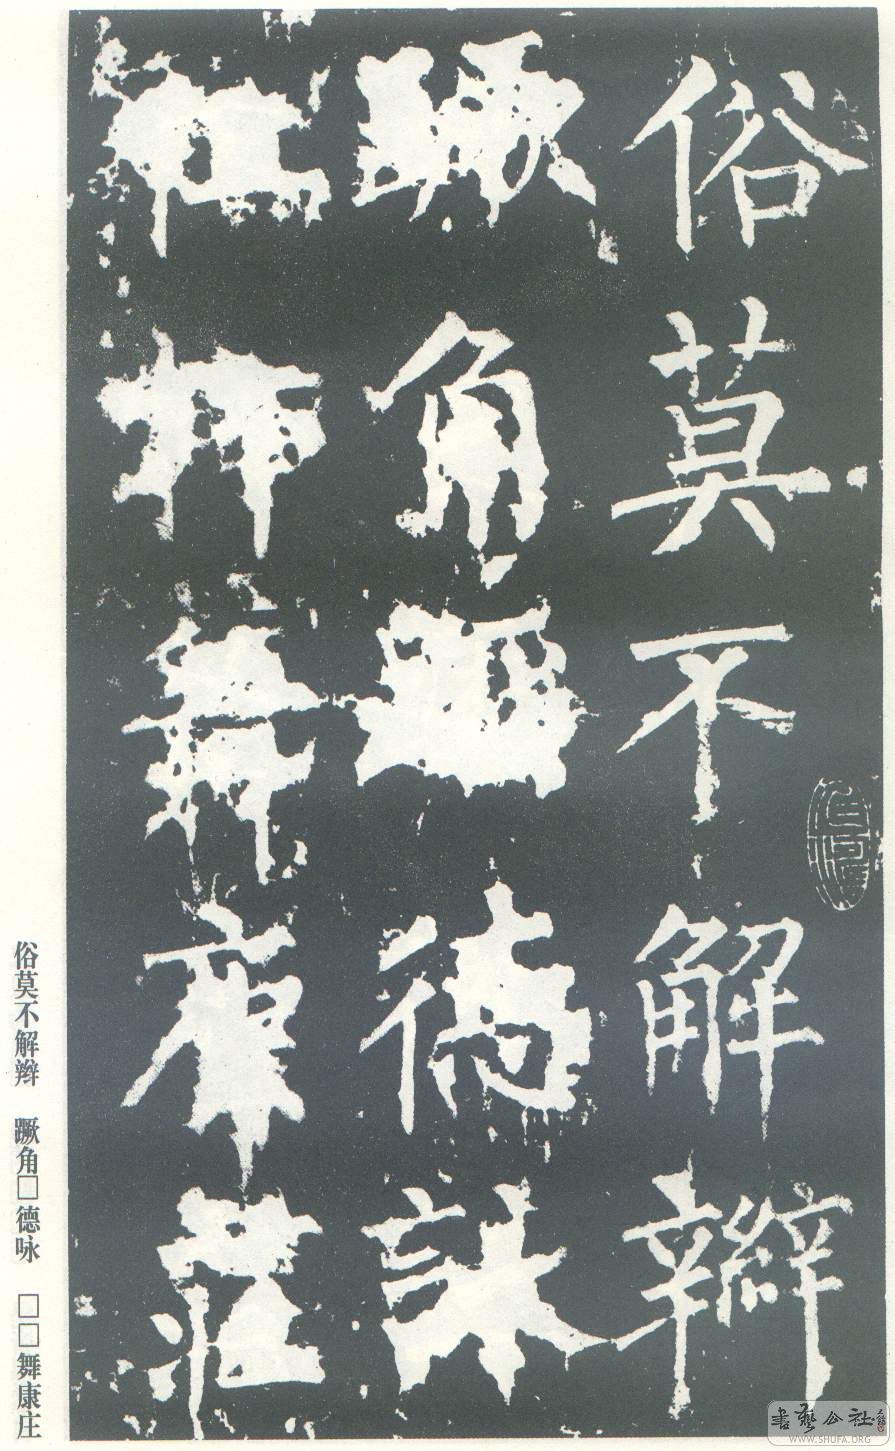 俗莫不解辮
蹶角德詠
舞康莊
俗莫不解辫　蹶角□德咏　□□舞康庄
書藝公社
WWW.SHUFA.ORG